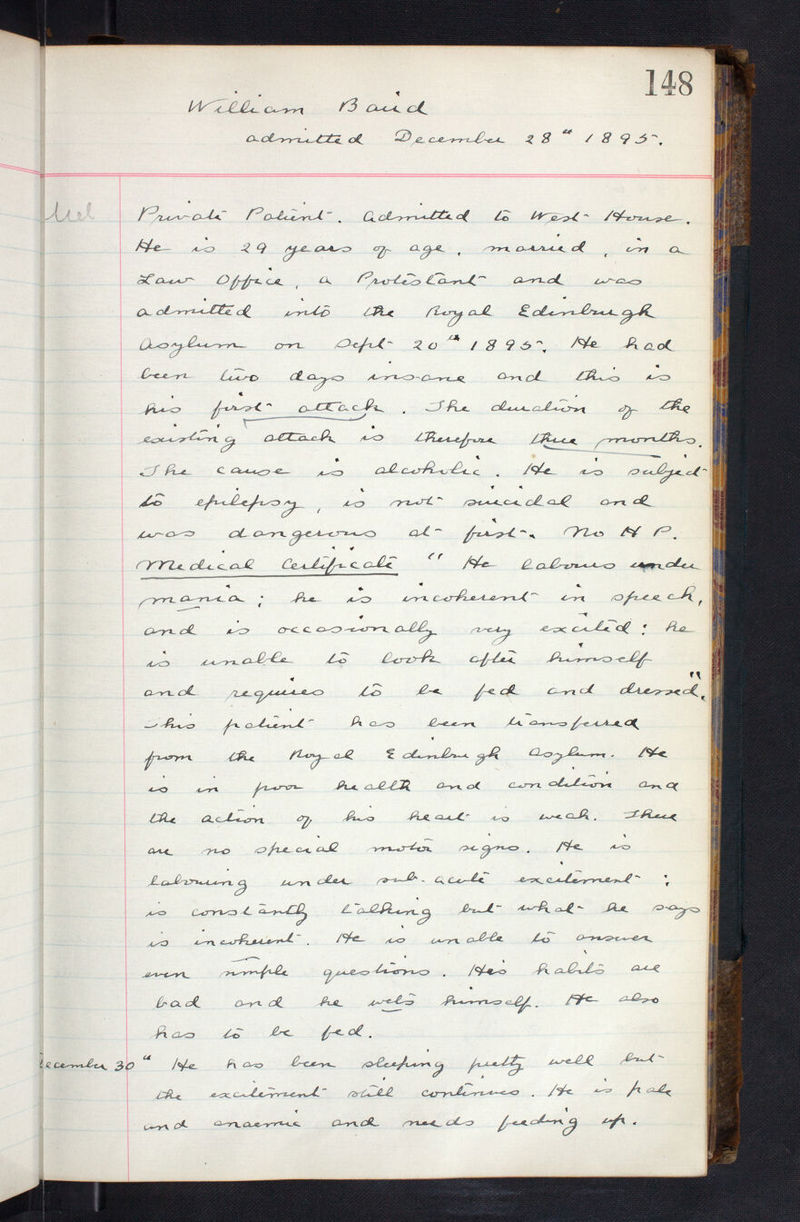 148
William Baird
admitted December 28th 1895.
Mel
Private Patient. Admitted to West House.
He is 29 years of age, married, in a
Law Office, a Protestant and was
admitted into the Royal Edinburgh
Asylum on Sept 20th 1895. He had
been two days insane and this is
his first attack. The duration of the
existing attack is therefore three months.
The cause is alcoholic. He is subject
to epilepsy, is not suicidal and
was dangerous at first. No H P.
Medical Certificate "He labours under
mania; he is incoherent in speech,
and is occasionally very excited: he
is unable to look after himself
and requires to be fed and dressed".
This patient has been transferred
from the Royal Edinburgh Asylum. He
is in poor health and condition and
the action of his heart is weak. There
are no special motor signs. He is
labouring under sub-acute excitement:
is constantly talking but what he says
is incoherent. He is unable to answer
even simple questions. His habits are
bad and he wets himself. He also
has to be fed.
December 30" He has been sleeping pretty well but
the excitement still continues. He is pale
and anaemic and needs feeding up.